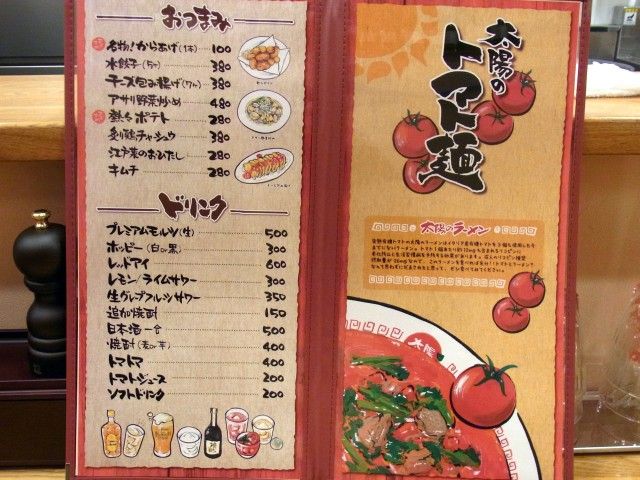 おつまみ
名物!からあげ(1本) 100
水餃子(5ヶ) 380
チーズ包み揚げ(7ヶ) 380
アサリ野菜炒め 480
熱々ポテト 280
炙り鶏チャーシュウ 380
江戸菜のおひたし 280
キムチ 280
ドリンク
プレミアムモルツ(生) 500
ホッピー(白or黒) 300
レッドアイ 600
レモン/ライムサワー 300
生グレープフルツサワー 350
追加焼酎 150
日本酒一合 500
焼酎(麦or芋) 400
トマトマ 400
トマトジュース 200
ソフトドリンク 200
太陽の
トマト麺
太陽のラーメン
太陽